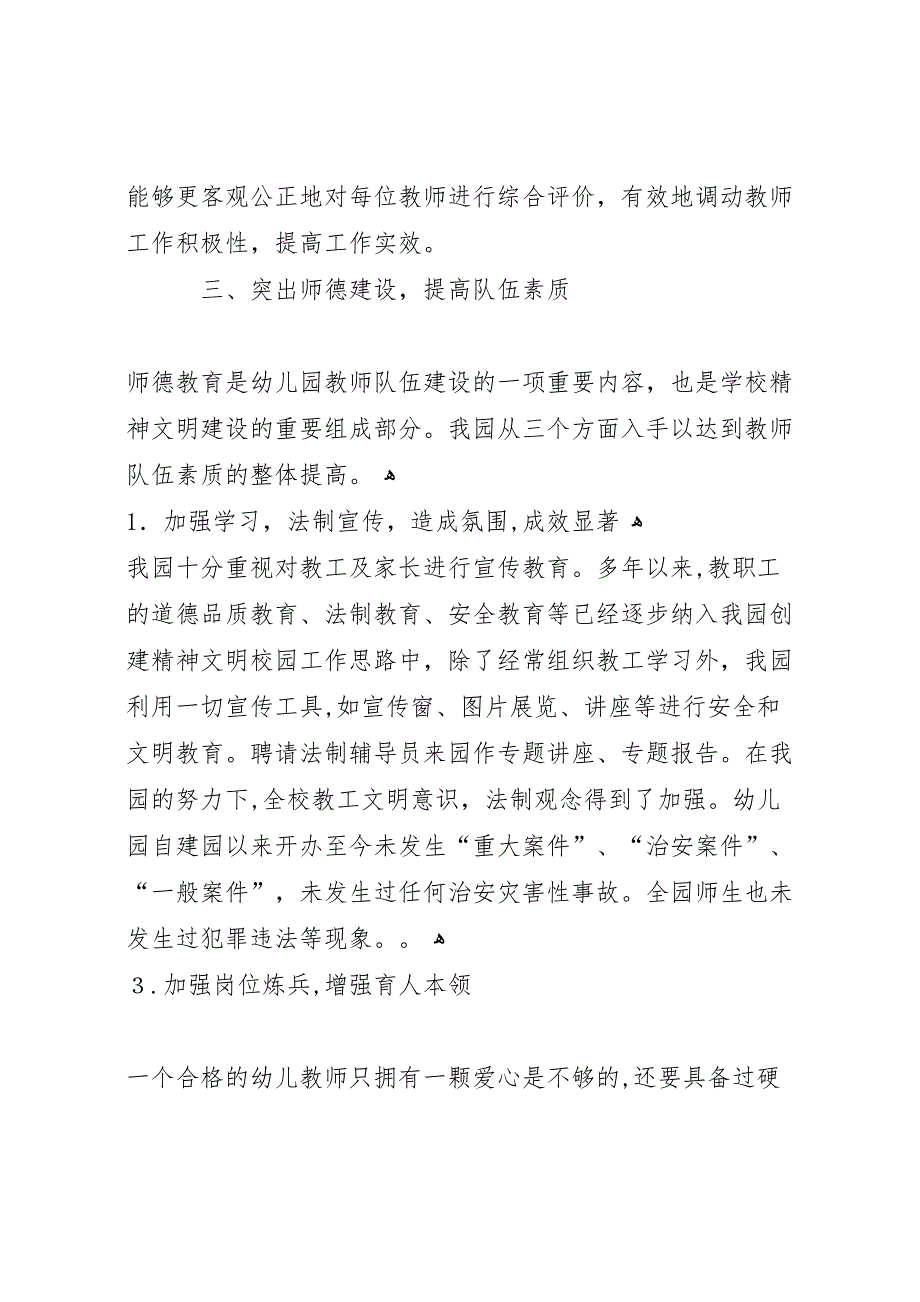 能够更客观公正地对每位教师进行综合评价，有效地调动教师
工作积极性，提高工作实效。
三、突出师德建设，提高队伍素质
师德教育是幼儿园教师队伍建设的一项重要内容，也是学校精
神文明建设的重要组成部分。我园从三个方面入手以达到教师
队伍素质的整体提高。 ﻫ
1．加强学习，法制宣传，造成氛围,成效显著 ﻫ
我园十分重视对教工及家长进行宣传教育。多年以来,教职工
的道德品质教育、法制教育、安全教育等已经逐步纳入我园创
建精神文明校园工作思路中，除了经常组织教工学习外，我园
利用一切宣传工具,如宣传窗、图片展览、讲座等进行安全和
文明教育。聘请法制辅导员来园作专题讲座、专题报告。在我
园的努力下,全校教工文明意识，法制观念得到了加强。幼儿
园自建园以来开办至今未发生“重大案件”、“治安案件”、
“一般案件”，未发生过任何治安灾害性事故。全园师生也未
发生过犯罪违法等现象。。 ﻫ
３.加强岗位炼兵,增强育人本领
一个合格的幼儿教师只拥有一颗爱心是不够的,还要具备过硬